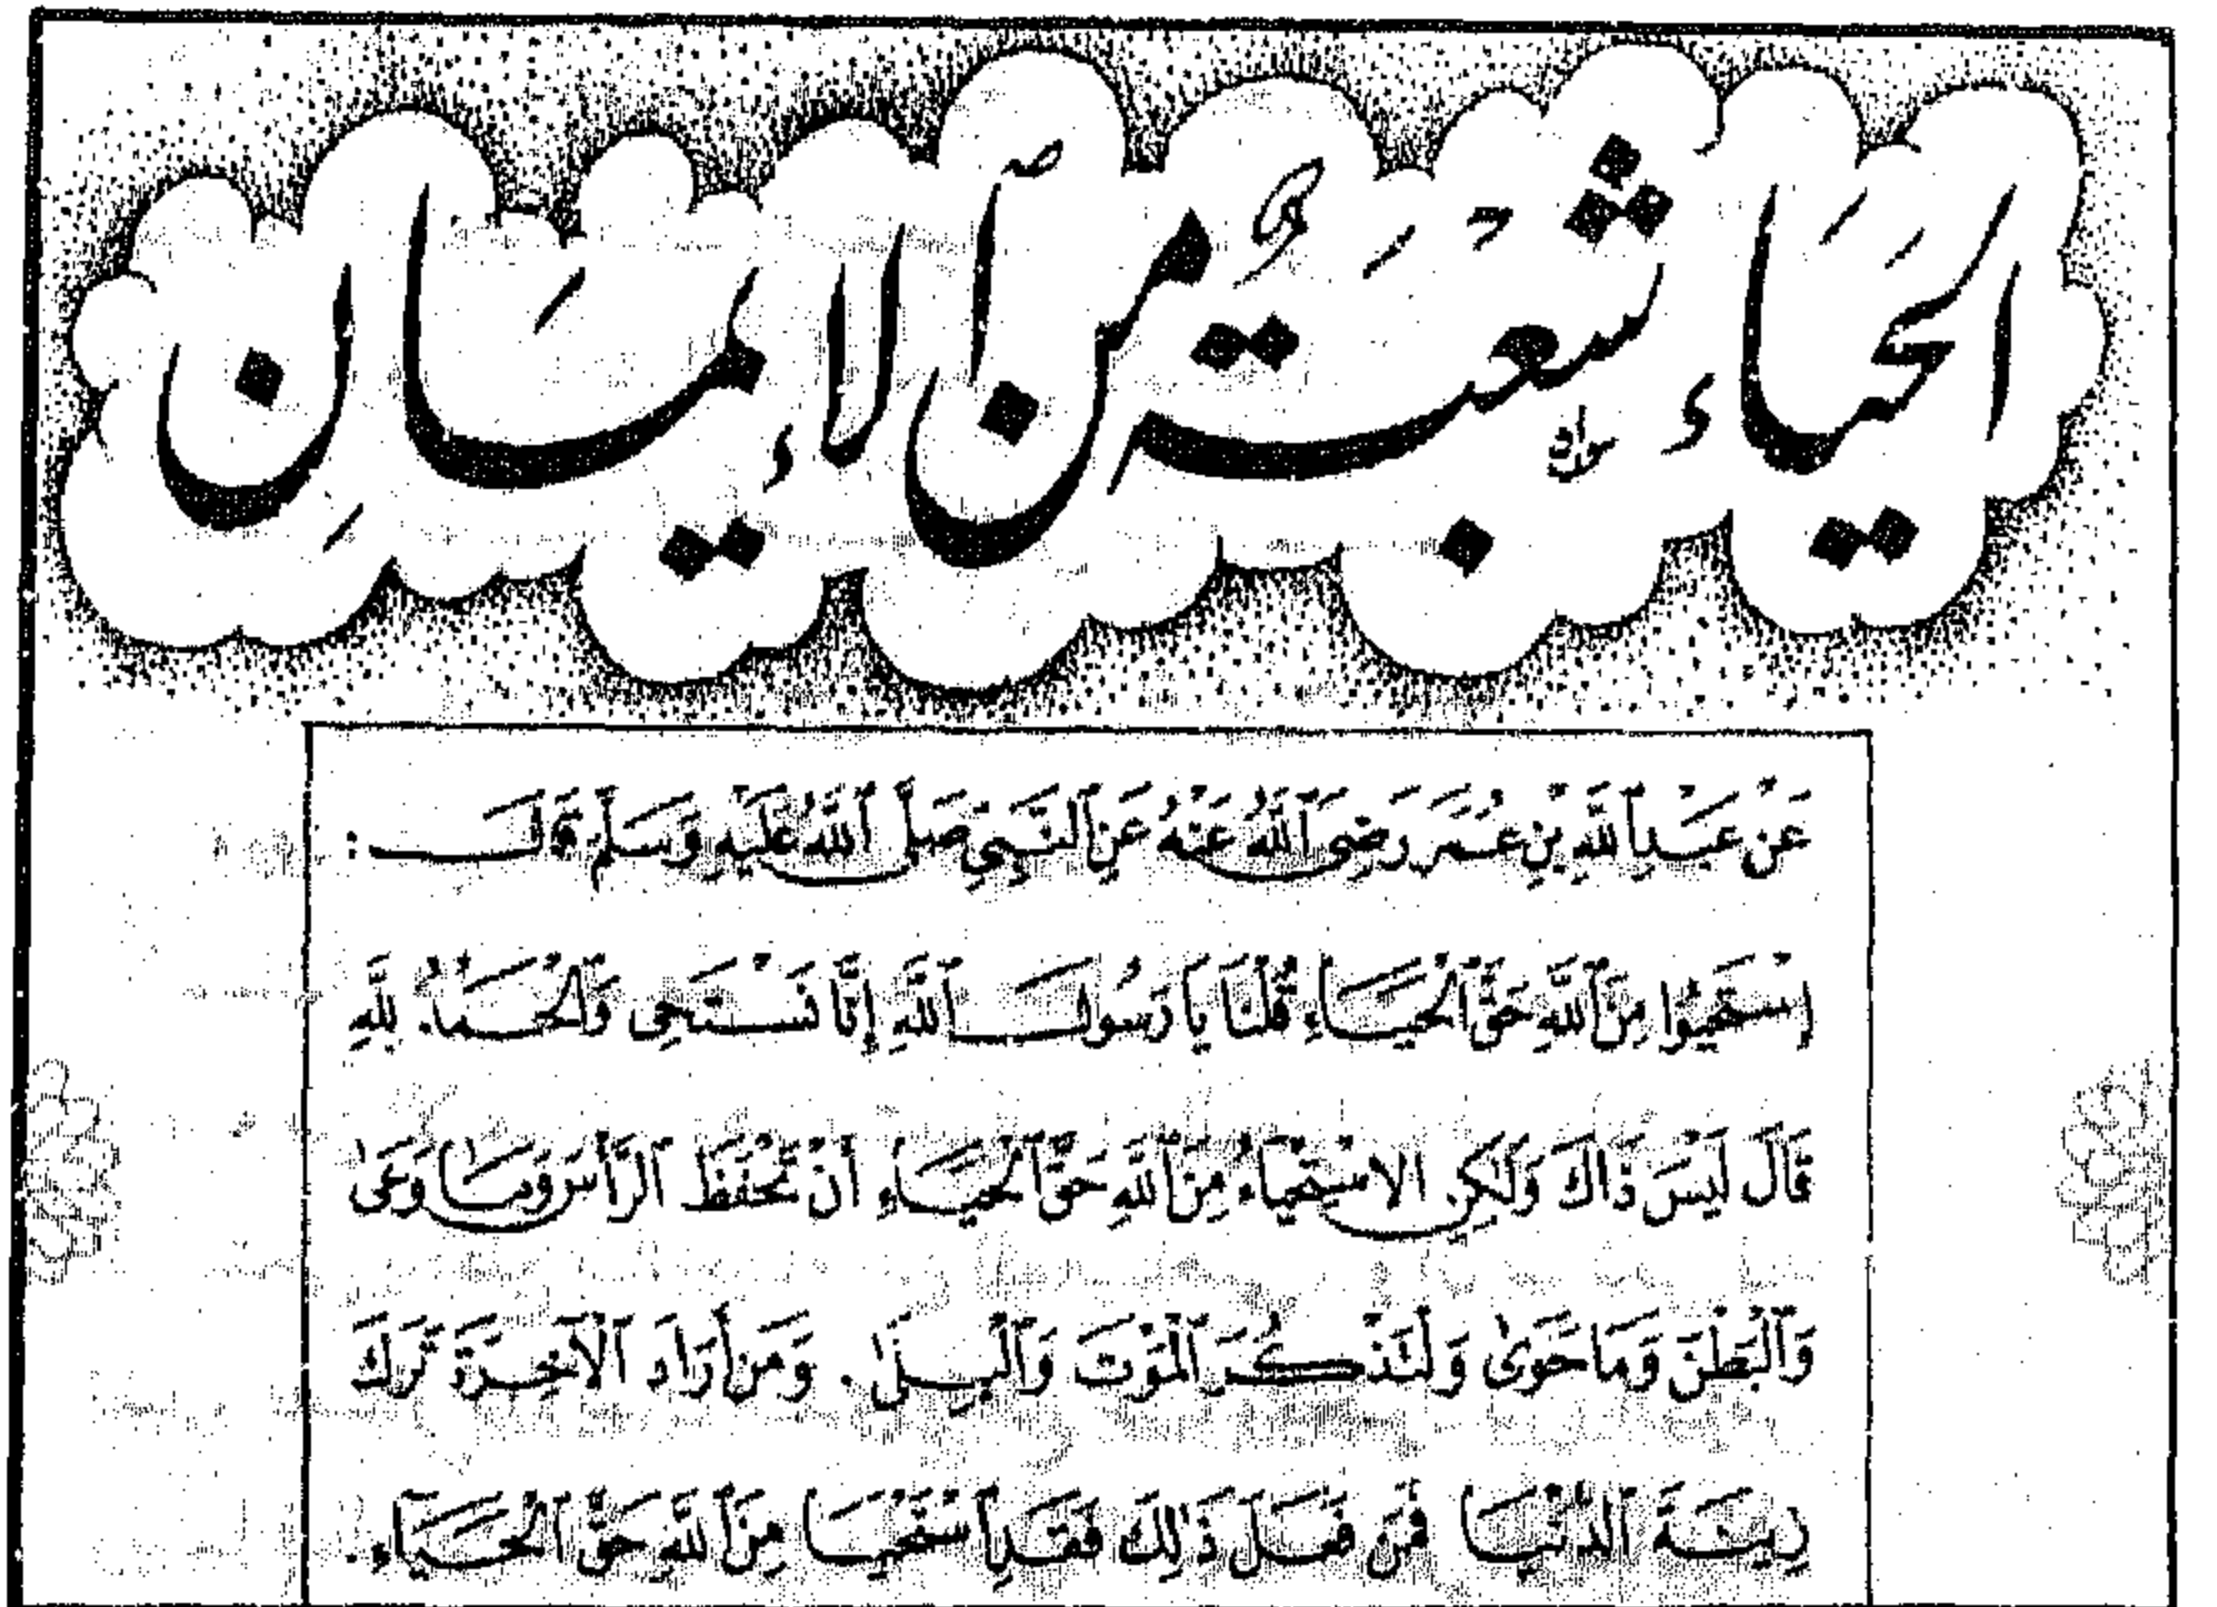 اَلْحَيَاءُ شُعْبَةٌ مِّنَ الْإِيمَانِ
عَنْ عَبْدِ اللَّهِ بْنِ عُمَرَ رَضِيَ اللَّهُ عَنْهُ عَنِ النَّبِيِّ صَلَّى اللَّهُ عَلَيْهِ وَسَلَّمَ قَالَ :
إِسْتَحْيُوا مِنَ اللَّهِ حَقَّ الْحَيَاءِ قُلْنَا يَا رَسُولَ اللَّهِ إِنَّا نَسْتَحِي وَالْحَمْدُ لِلَّهِ
قَالَ لَيْسَ ذَاكَ وَلَكِنِ الِاسْتِحْيَاءُ مِنَ اللَّهِ حَقَّ الْحَيَاءِ أَنْ تَحْفَظَ الرَّأْسَ وَمَا وَعَى
وَالْبَطْنَ وَمَا حَوَى وَلْتَذْكُرَ الْمَوْتَ وَالْبِلَى . وَمَنْ أَرَادَ الْآخِرَةَ تَرَكَ
زِينَةَ الدُّنْيَا فَمَنْ فَعَلَ ذَلِكَ فَقَدِ اسْتَحْيَا مِنَ اللَّهِ حَقَّ الْحَيَاءِ .